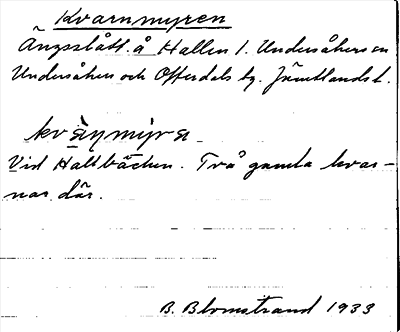 Kvarnmyren
Ängsslått å Hallen 1. Undersåkers sn
Undersåkers och Offerdals tg. Jämtlands l.
kvà̱ɳmýra
Vid Hallbäcken. Två gamla kvar-
nar där.
B. Blomstrand 1933